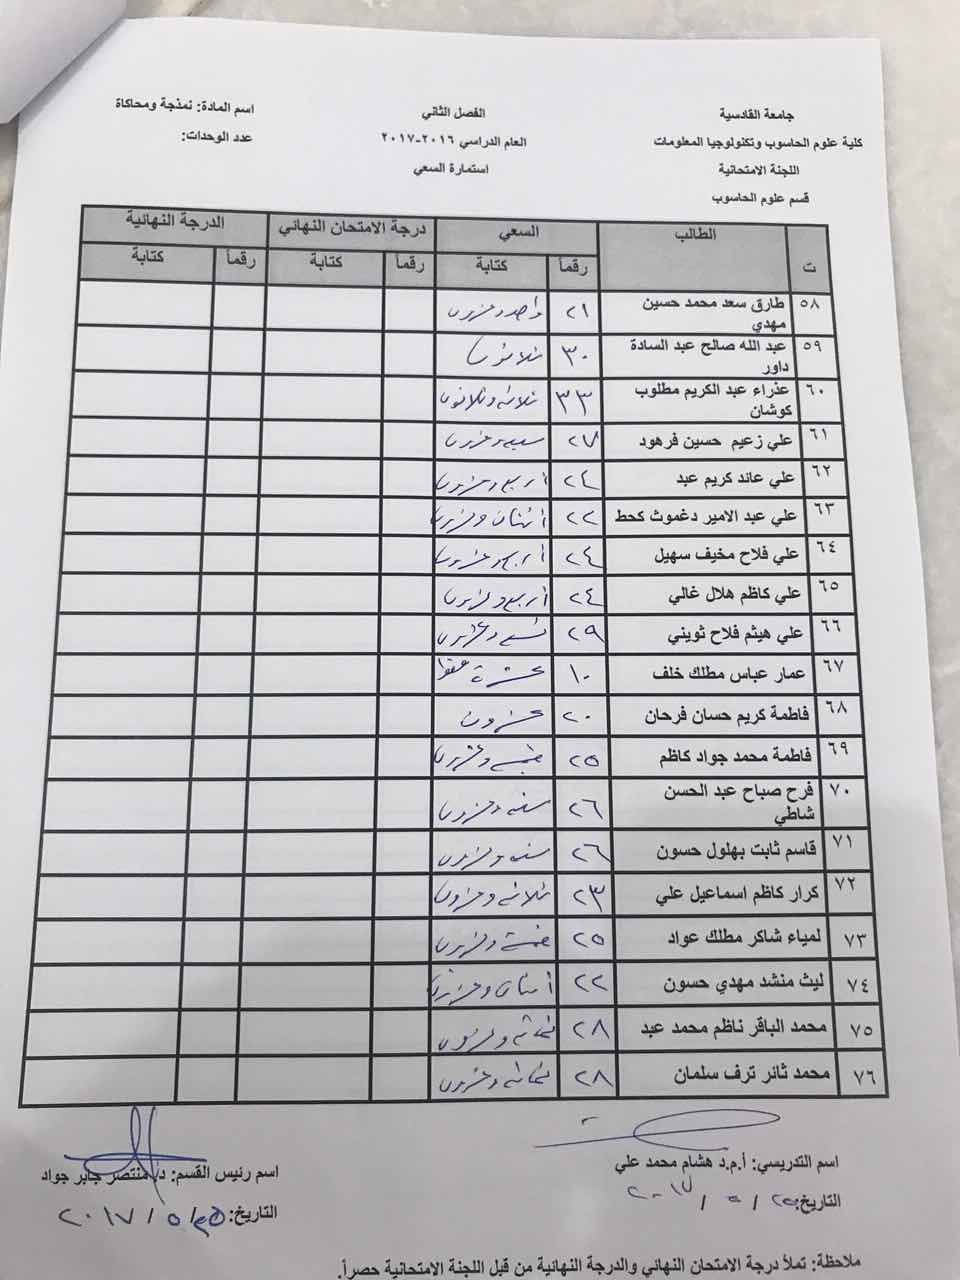 جامعة القادسية
كلية علوم الحاسوب وتكنولوجيا المعلومات
اللجنة الامتحانية
قسم علوم الحاسوب
الفصل الثاني
العام الدراسي ٢٠١٦-٢٠١٧
استمارة السعي
اسم المادة: نمذجة ومحاكاة
عدد الوحدات:
ت الطالب السعي درجة الامتحان النهائي الدرجة النهائية
رقماً كتابة رقماً كتابة رقماً كتابة
٥٨ طارق سعد محمد حسين ٢١ واحد وعشرون
مهدي
٥٩ عبد الله صالح عبد السادة ٣٠ ثلاثون
داور
٦٠ عذراء عبد الكريم مطلوب ٣٣ ثلاثة وثلاثون
كوشان
٦١ علي زعيم حسين فرهود ٢٧ سبعة وعشرون
٦٢ علي عائد كريم عبد ٢٤ اربع وعشرون
٦٣ علي عبد الامير دغموث كحط ٢٢ اثنان وعشرون
٦٤ علي فلاح مخيف سهيل ٢٤ اربع وعشرون
٦٥ علي كاظم هلال غالي ٢٤ اربع وعشرون
٦٦ علي هيثم فلاح ثويني ٢٩ تسع وعشرون
٦٧ عمار عباس مطلك خلف ١٠ عشرة فقط
٦٨ فاطمة كريم حسان فرحان ٢٠ عشرون
٦٩ فاطمة محمد جواد كاظم ٢٥ خمسة وعشرون
٧٠ فرح صباح عبد الحسن ٢٦ ستة وعشرون
شاطي
٧١ قاسم ثابت بهلول حسون ٢٦ ستة وعشرون
٧٢ كرار كاظم اسماعيل علي ٢٣ ثلاثة وعشرون
٧٣ لمياء شاكر مطلك عواد ٢٥ خمسة وعشرون
٧٤ ليث منشد مهدي حسون ٢٢ اثنان وعشرون
٧٥ محمد الباقر ناظم محمد عبد ٢٨ ثمانية وعشرون
٧٦ محمد ثائر ترف سلمان ٢٨ ثمانية وعشرون
اسم التدريسي: أ.م.د هشام محمد علي
التاريخ: ٢٠١٧
اسم رئيس القسم: د. منتصر جابر جواد
التاريخ: ٢٠١٧/٥/
ملاحظة: تملأ درجة الامتحان النهائي والدرجة النهائية من قبل اللجنة الامتحانية حصراً.